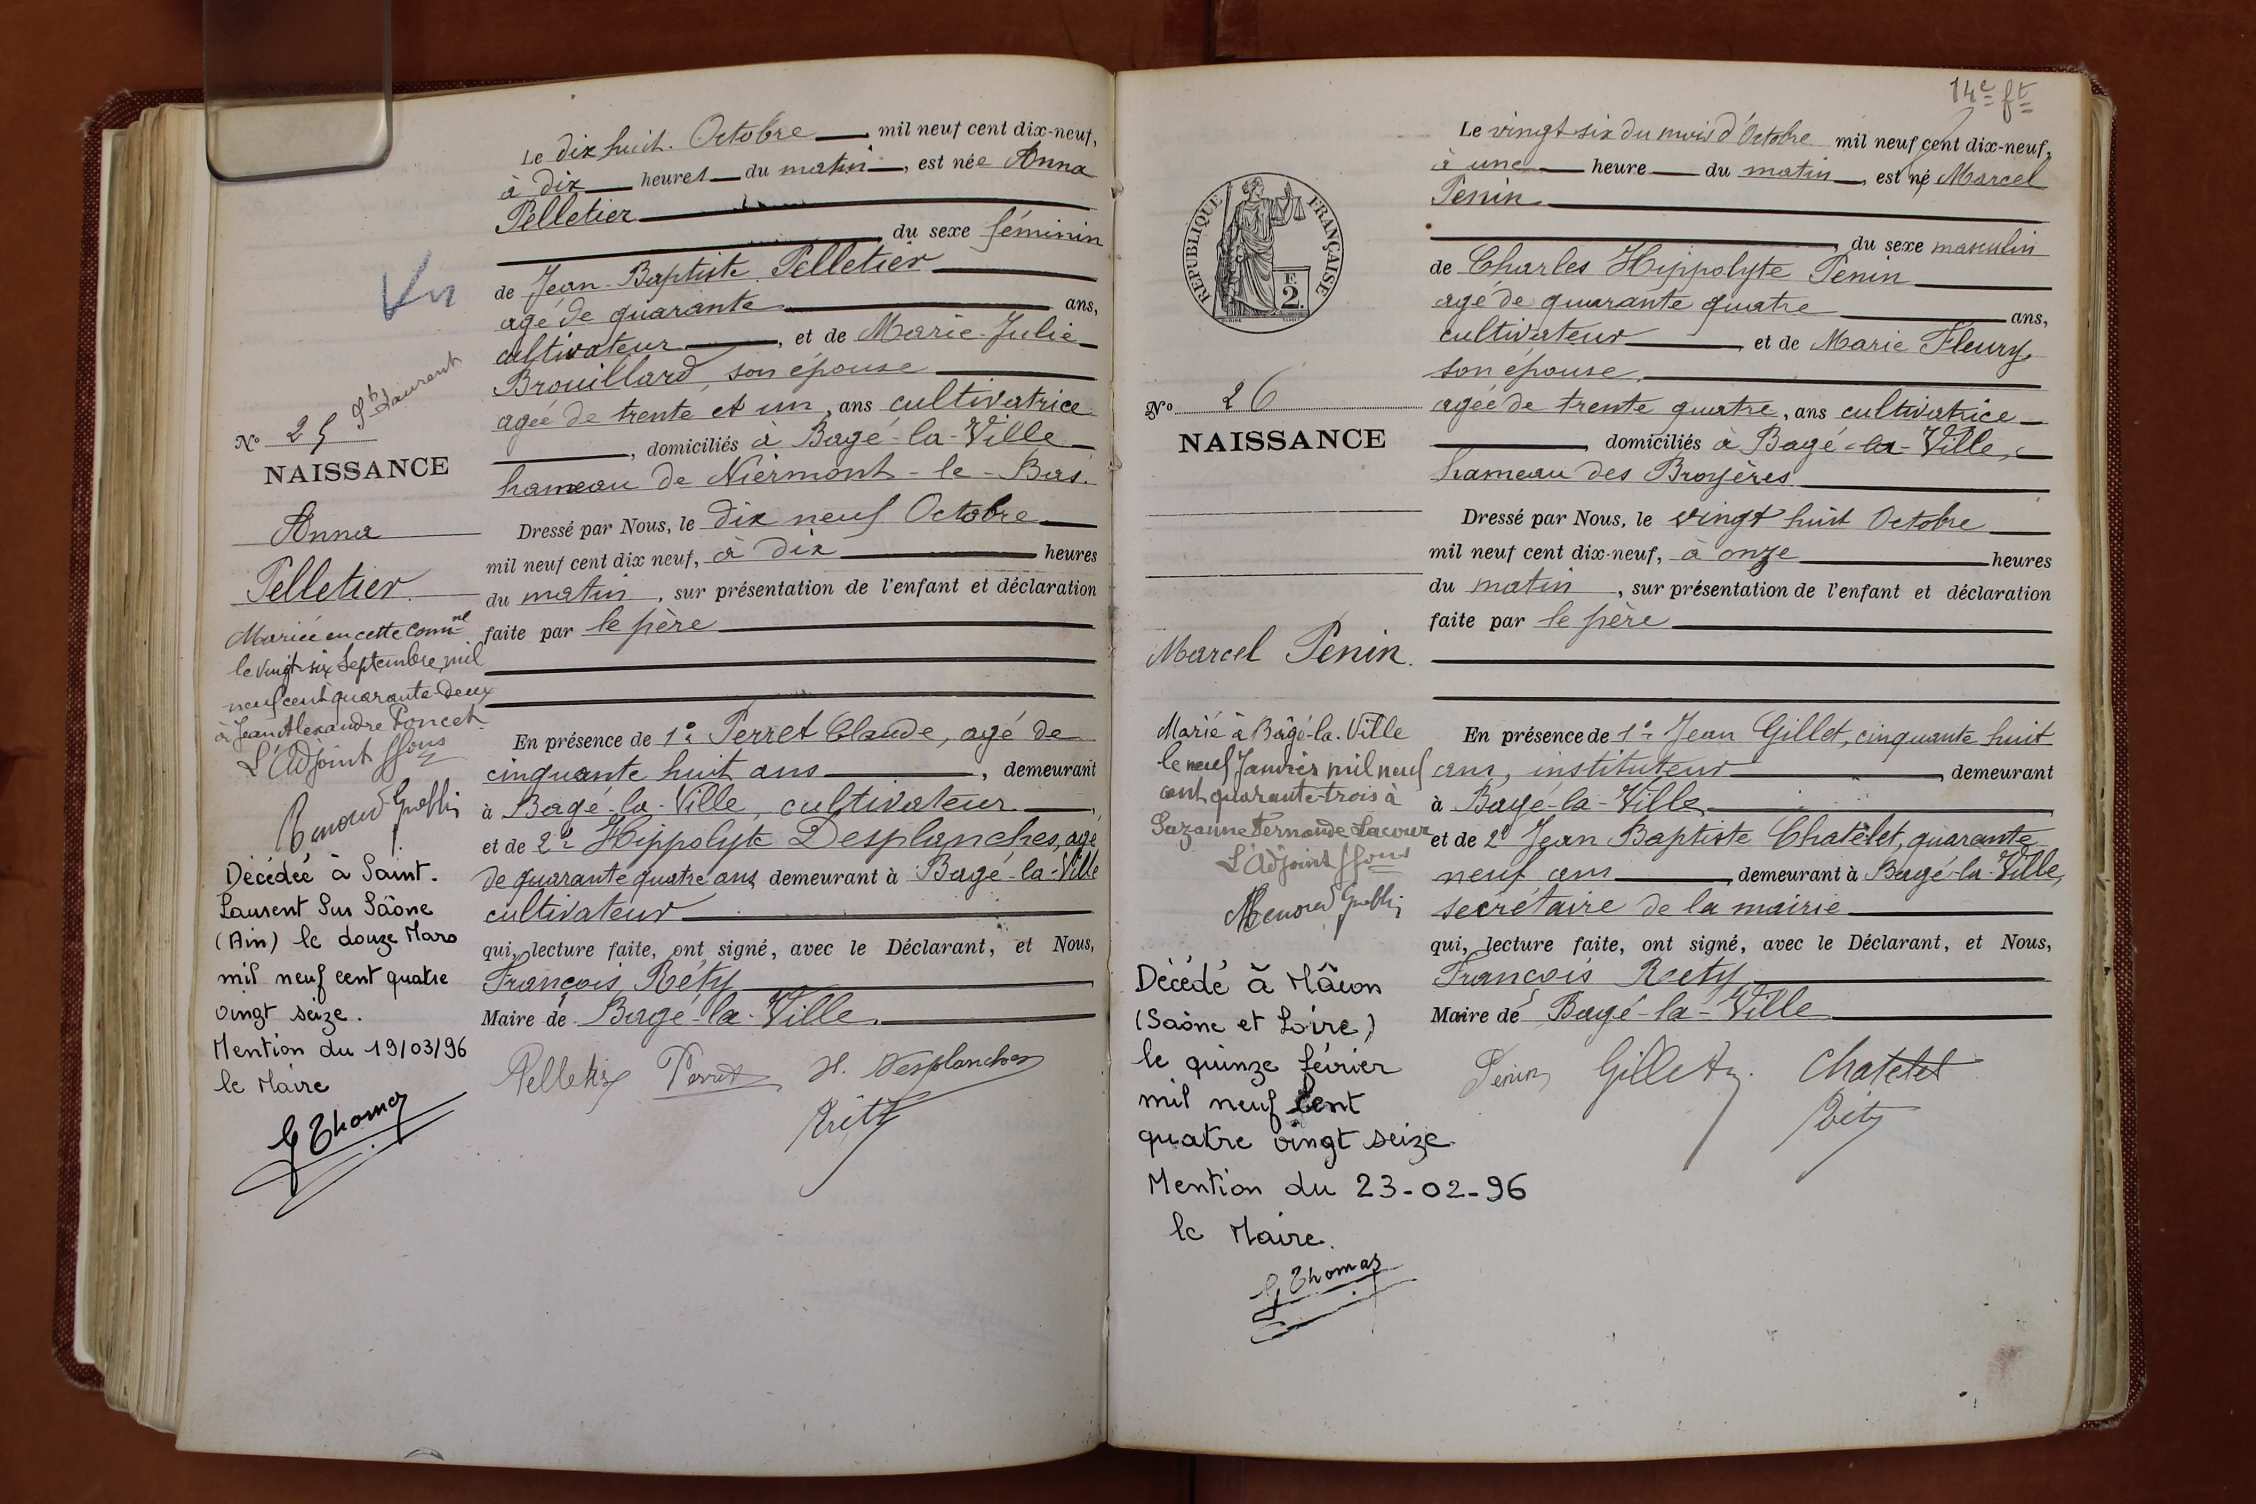 Le dix huit. Octobre mil neuf cent dix-neuf,
à dix heures du matin, est née Anna
Pelletier
du sexe féminin
de Jean-Baptiste Pelletier
agé de quarante ans,
cultivateur, et de Marie-Julie
Brouillard, son épouse
agée de trente et un, ans cultivatrice
, domiciliés à Bagé-la-Ville
hameau de Niermont-le-Bas.
Dressé par Nous, le dix neuf Octobre
mil neuf cent dix neuf, à dix heures
du matin, sur présentation de l'enfant et déclaration
faite par le père
En présence de 1° Perret Claude, agé de
cinquante huit ans, demeurant
à Bagé-la-Ville, cultivateur,
et de 2° Hippolyte Desplanches, agé
de quarante quatre ans, demeurant à Bagé-la-Ville
cultivateur
qui, lecture faite, ont signé, avec le Déclarant, et Nous,
François Réty
Maire de Bagé-la-Ville.
Pelletier Perret H. Desplanches
Réty
St Laurent
N° 25
NAISSANCE
Anna
Pelletier.
Mariée en cette comm.ne
le vingt-six Septembre mil
neuf cent quarante-deux
à Jean Alexandre Poncet
L'Adjoint ffons
Décédée à Saint-
Laurent Sur Saône
(Ain) le douze Mars
mil neuf cent quatre
vingt seize.
Mention du 19/03/96
le Maire
G Thomas
14e ft
Le vingt-six du mois d'Octobre mil neuf cent dix-neuf,
à une heure du matin, est né Marcel
Penin
, du sexe masculin
de Charles Hippolyte Penin
agé de quarante quatre ans,
cultivateur et de Marie Fleury,
son épouse,
agée de trente quatre, ans cultivatrice
, domiciliés à Bagé-la-Ville,
hameau des Broyères
Dressé par Nous, le vingt huit Octobre
mil neuf cent dix-neuf, à onze heures
du matin, sur présentation de l'enfant et déclaration
faite par le père
En présence de 1° Jean Gillet, cinquante huit
ans, instituteur, demeurant
à Bagé-la-Ville
et de 2° Jean Baptiste Chatelet, quarante
neuf ans, demeurant à Bagé-la-Ville,
secrétaire de la mairie
qui, lecture faite, ont signé, avec le Déclarant, et Nous,
François Réty
Maire de Bagé-la-Ville
Penin Gillet Chatelet
Réty
RÉPUBLIQUE FRANÇAISE
F.
2.
N° 26
NAISSANCE
Marcel Penin.
Marié à Bâgé-la-Ville
le neuf Janvier mil neuf
cent quarante-trois à
Suzanne Fernande Lacour
L'Adjoint ffons
Décédé à Mâcon
(Saône et Loire)
le quinze février
mil neuf cent
quatre vingt seize
Mention du 23-02-96
le Maire.
G Thomas